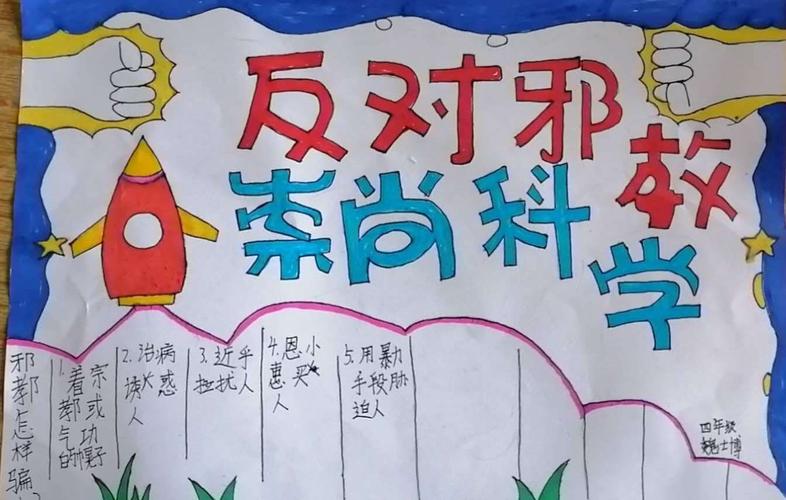 反对邪教
崇尚科学
邪教怎样骗
1.着宗
教或
气功
的幌子
2.治病
诱惑
人
3.近乎
拉扰人
4.恩小
惠买
人
5.用暴力
手段胁
迫人
四年级
魏士博